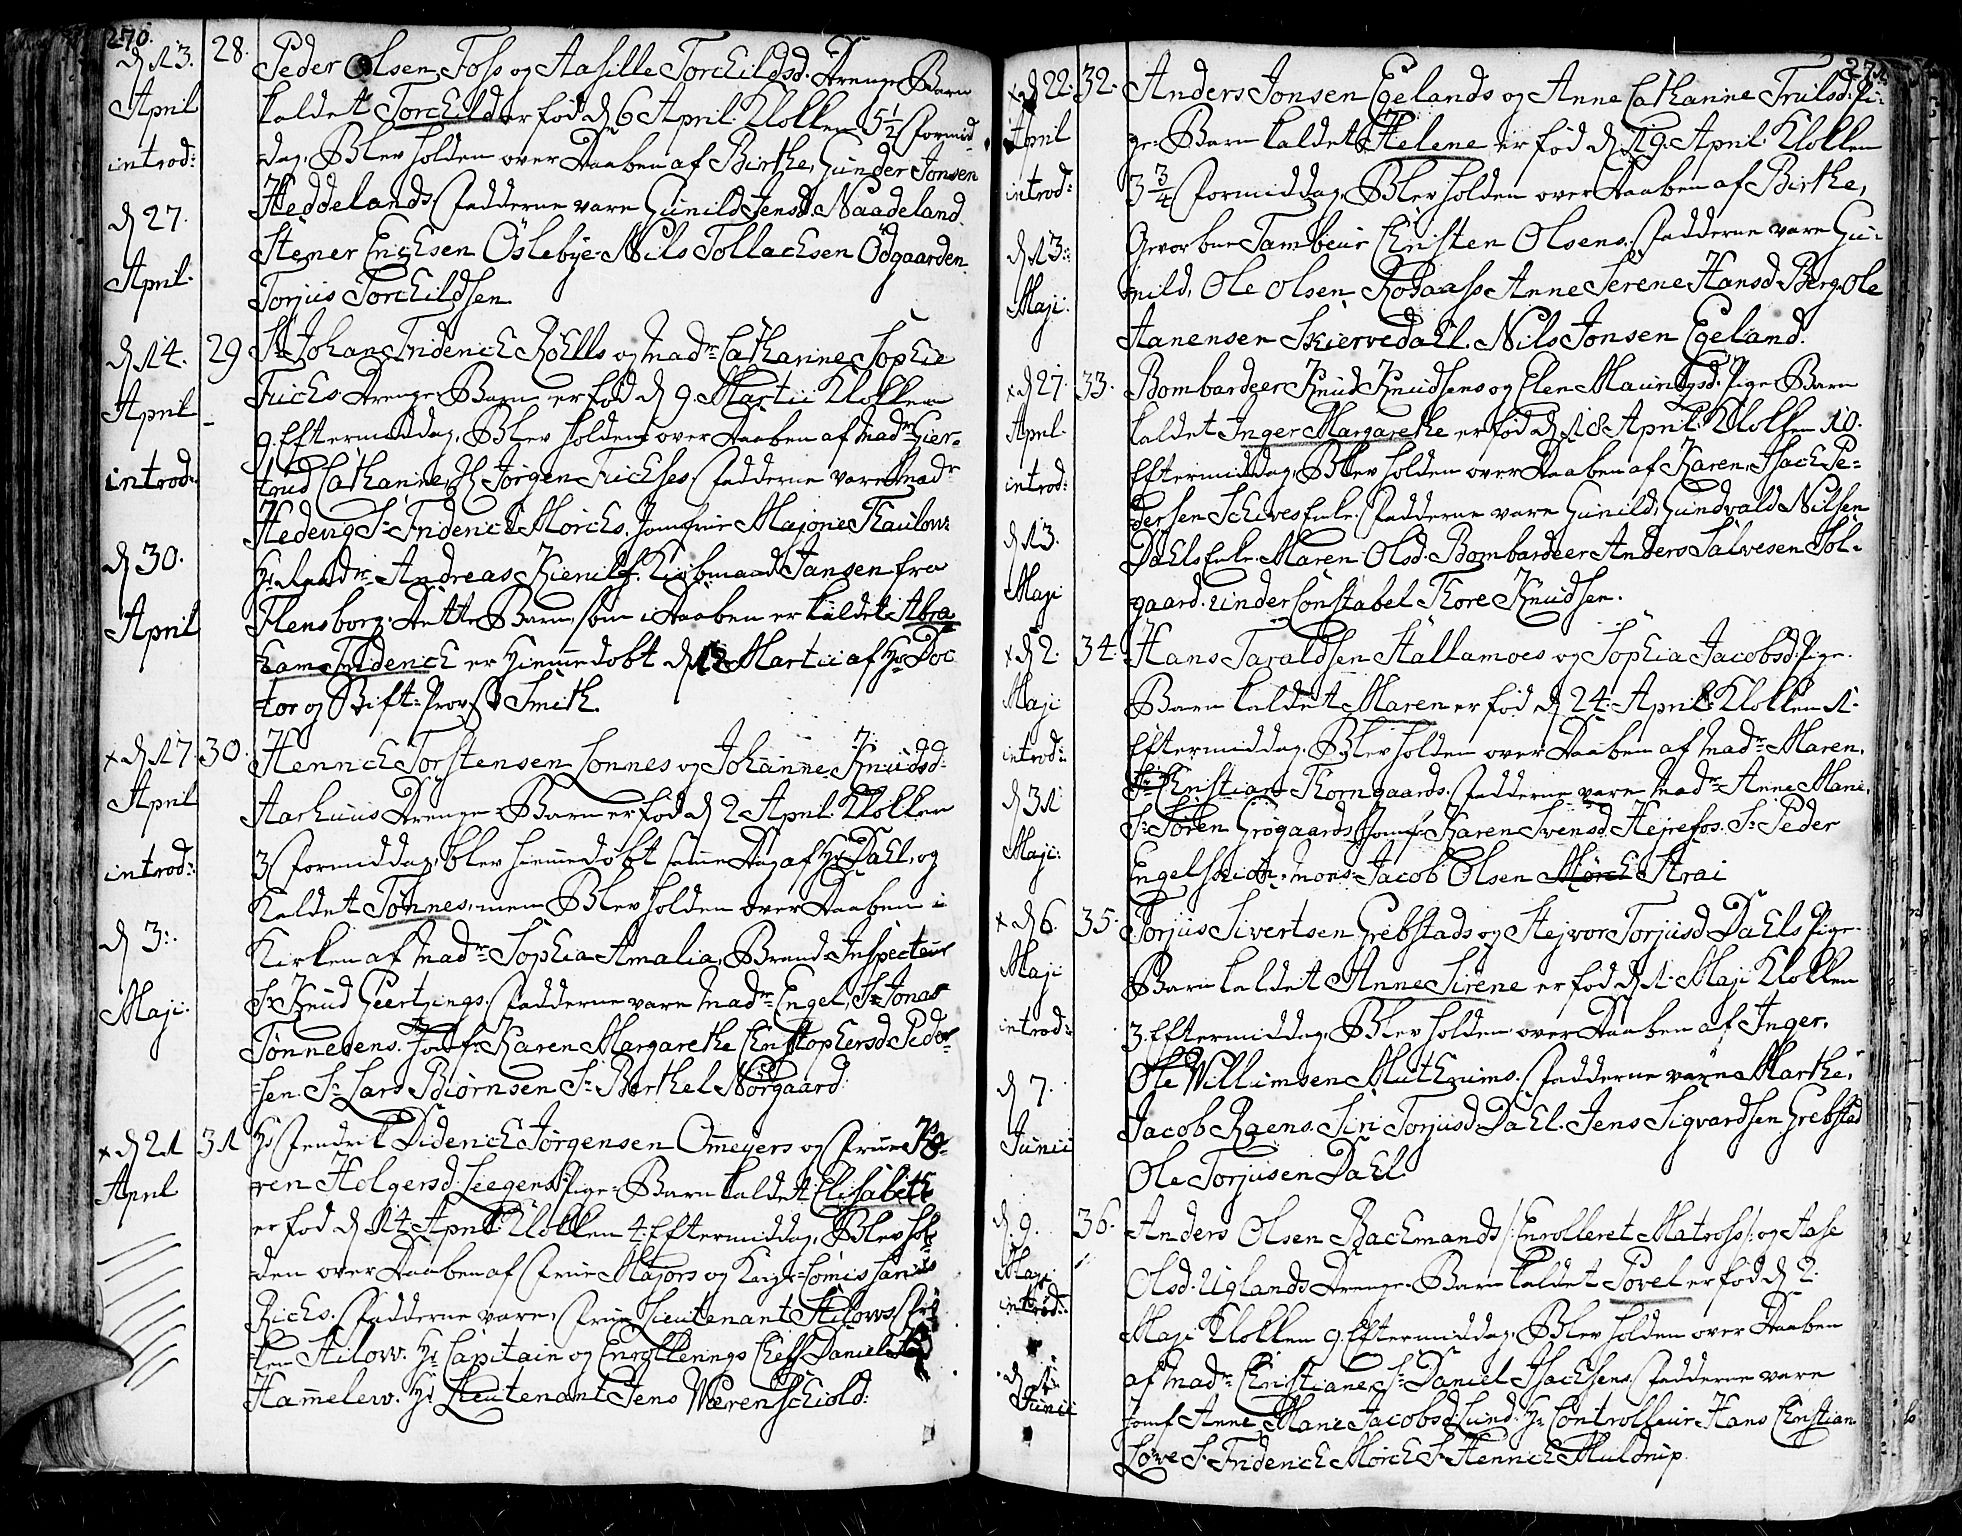 270.
d 13. April introd: d 27. April.
28. Peder Olsen Foss og Aasille Torchildsd. Drenge Barn
kaldet Torchild er fød d 6 April. Klokken 5½ Formid-
dag, Blev holden over Daaben af Birthe, Gunder Jonsen
Heddelands. Fadderne vare Gunild Jensd. Naadeland.
Stener Erichsen Öslebye. Nils Tollachsen Ödgaarden.
Torjus Torchildsen.
d 14. April introd: d 30. April
29 Sr. Johan Friderich Röells og Madme Catharine Sophie
Frichs Drenge Barn er fød d 9 Martii Klokken
9. Eftermiddag, Blev holden over Daaben af Madme Gier-
trud Catharine, H Jørgen Frichses. Fadderne vare Madme
Hedevig Sr. Friderich Mörchs. Jomfrue Majorie Thaulow.
Hr. Andreas Kierulf. Kiøbmand Jansen fra
Flensborg. Dette Barn, som i Daaben er kaldet Abra-
ham Friderich er hiemmedøbt d 12 Martii af Hr. Doc
tor og Stift-Provst Smith.
x d 17. April introd: d 3. Maji.
30. Henrich Torstensen Sonnes og Johanne Knudsd.
Aarhuus Drenge Barn er fød d 2 April. Klokken
3 Formiddag, blev hiemmedøbt samme Dag af Hr. Dahl, og
Kaldet Tønnes, men Blev holden over Daaben i
Kirken af Madme Sophia Amalia, Brand-Inspecteur
Sr. Knud Geertzings. Fadderne vare Madme Engel, Sr. Jonas
Tønnesens. Jomfr. Karen Margarethe Christophersd. Peder-
sen. Sr. Lars Biørnsen Sr. Berthel Nørgaard.
x d 21 April
31 Hr. Fendrik Diderich Jørgensen Omeyers og Frue Ka-
ren Holgersd. Leegens Pige-Barn kaldet Elisabeth
er fød d 14 April. Klokken 4. Eftermiddag, Blev hol-
den over Daaben af Frue Majors og Krigs-Comissarius
Richs. Fadderne vare, Frue Lieutenant Stilows Frø-
ken Stilow. Hr. Capitain og Enrollerings Cheff Daniel
Hammelew. Hr. Lieutenant Jens Wærenschiold.
271.
x d 22. April introd: d 13. Maji.
32. Anders Jonsen Egelands og Anne Catharine Trulsd. Pi-
ge-Barn kaldet Helene er fød d 19. April. Klokken
3¾ Formiddag, Blev holden over Daaben af Birthe,
Gevorbne Tambour Christen Olsens. Fadderne vare Gu-
nild, Ole Olsen Anne Serene Hansd. Berg. Ole
Aanensen Skiervedahl. Nils Jonsen Egeland.
x d 27. April. introd: d 13. Maji
33. Bombardeer Knud Knudsens og Elen Mauritzsd. Pige Barn
kaldet Inger Margarethe er fød d 18 April. Klokken 10.
Eftermiddag, Blev holden over Daaben af Karen, Isach Pe-
dersen Schives Enke. Fadderne vare Gunild, Gundvald Nilsen
Dahls Enke. Maren Olsd. Bombardeer Anders Salvesen Sol-
gaard. Underconstabel Thore Knudsen.
x d 2. Maji introd: d 31 Maji.
34. Hans Taraldsen Stallamoes og Sophia Jacobsd. Pige
Barn kaldet Maren er fød d 24. April. Klokken 1.
Eftermiddag, Blev holden over Daaben af Madme Maren,
Sr. Christian Thorngaards. Fadderne vare Madme Anne Marie,
Sr. Søren Grøgaards. Jomf. Karen Svensd. Hejrefos. Sr. Peder
Engelskiøn. Mons. Jacob Olsen Mörch Strai
x d 6. Maji introd: d 7. Junii
35. Torjus Sivertsen Grebstads og Stejvor Torjusd. Dahls Pige-
Barn kaldet Anne Sirene er fød d 1. Maji Klokken
3. Eftermiddag, Blev holden over Daaben af Inger,
Ole Willumsen Muthzums. Fadderne vare Marthe,
Jacob Raens. Siri Torjusd. Dahl. Jens Sigvardsen Grebstad
Ole Torjusen Dahl.
d. 9. Maji introd: d 1. Junii
36. Anders Olsen Bachmands /: Enrolleret Matross :/ og Aase
Olsd. Uglands Drenge-Barn kaldet Povel er fød d 2.
Maji Klokken 9. Eftermiddag, Blev holden over Daaben
af Madme Christiane, Sr. Daniel Isachsens. Fadderne vare
Jomf. Anne Marie Jacobsd. Lund. Hr. Controlleur Hans Christian
Løve Sr. Friderich Mörch Sr. Henrich Muldrup.